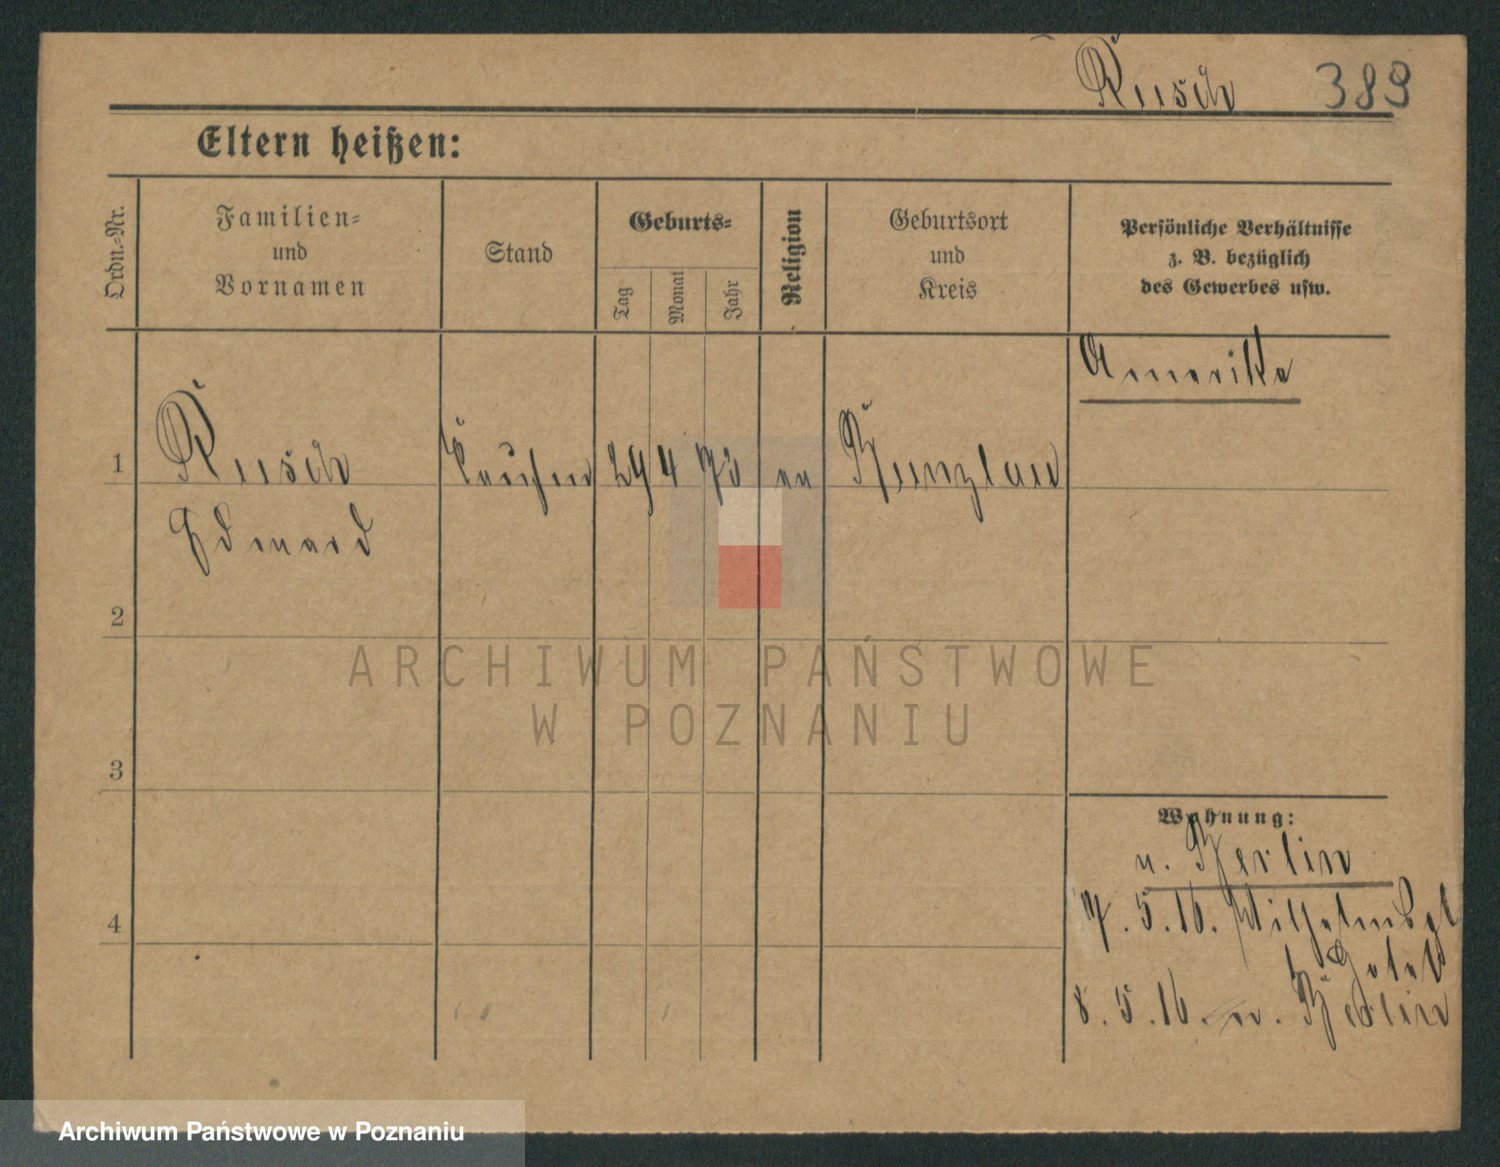 Rusch 389
Eltern heißen:
Ordn.=Nr.
Familien=
und
Vornamen
Stand
Geburts=
Tag
Monat
Jahr
Religion
Geburtsort
und
Kreis
Persönliche Verhältnisse
z. B. bezüglich
des Gewerbes usw.
Amerika
1 Rusch 29 4 73 ev Bunzlau
Eduard
2
3
4
Wohnung:
n. Berlin
7. 5. 16.
Hotel
8. 5. 16. n. Berlin
ARCHIWUM PAŃSTWOWE
W POZNANIU
Archiwum Państwowe w Poznaniu